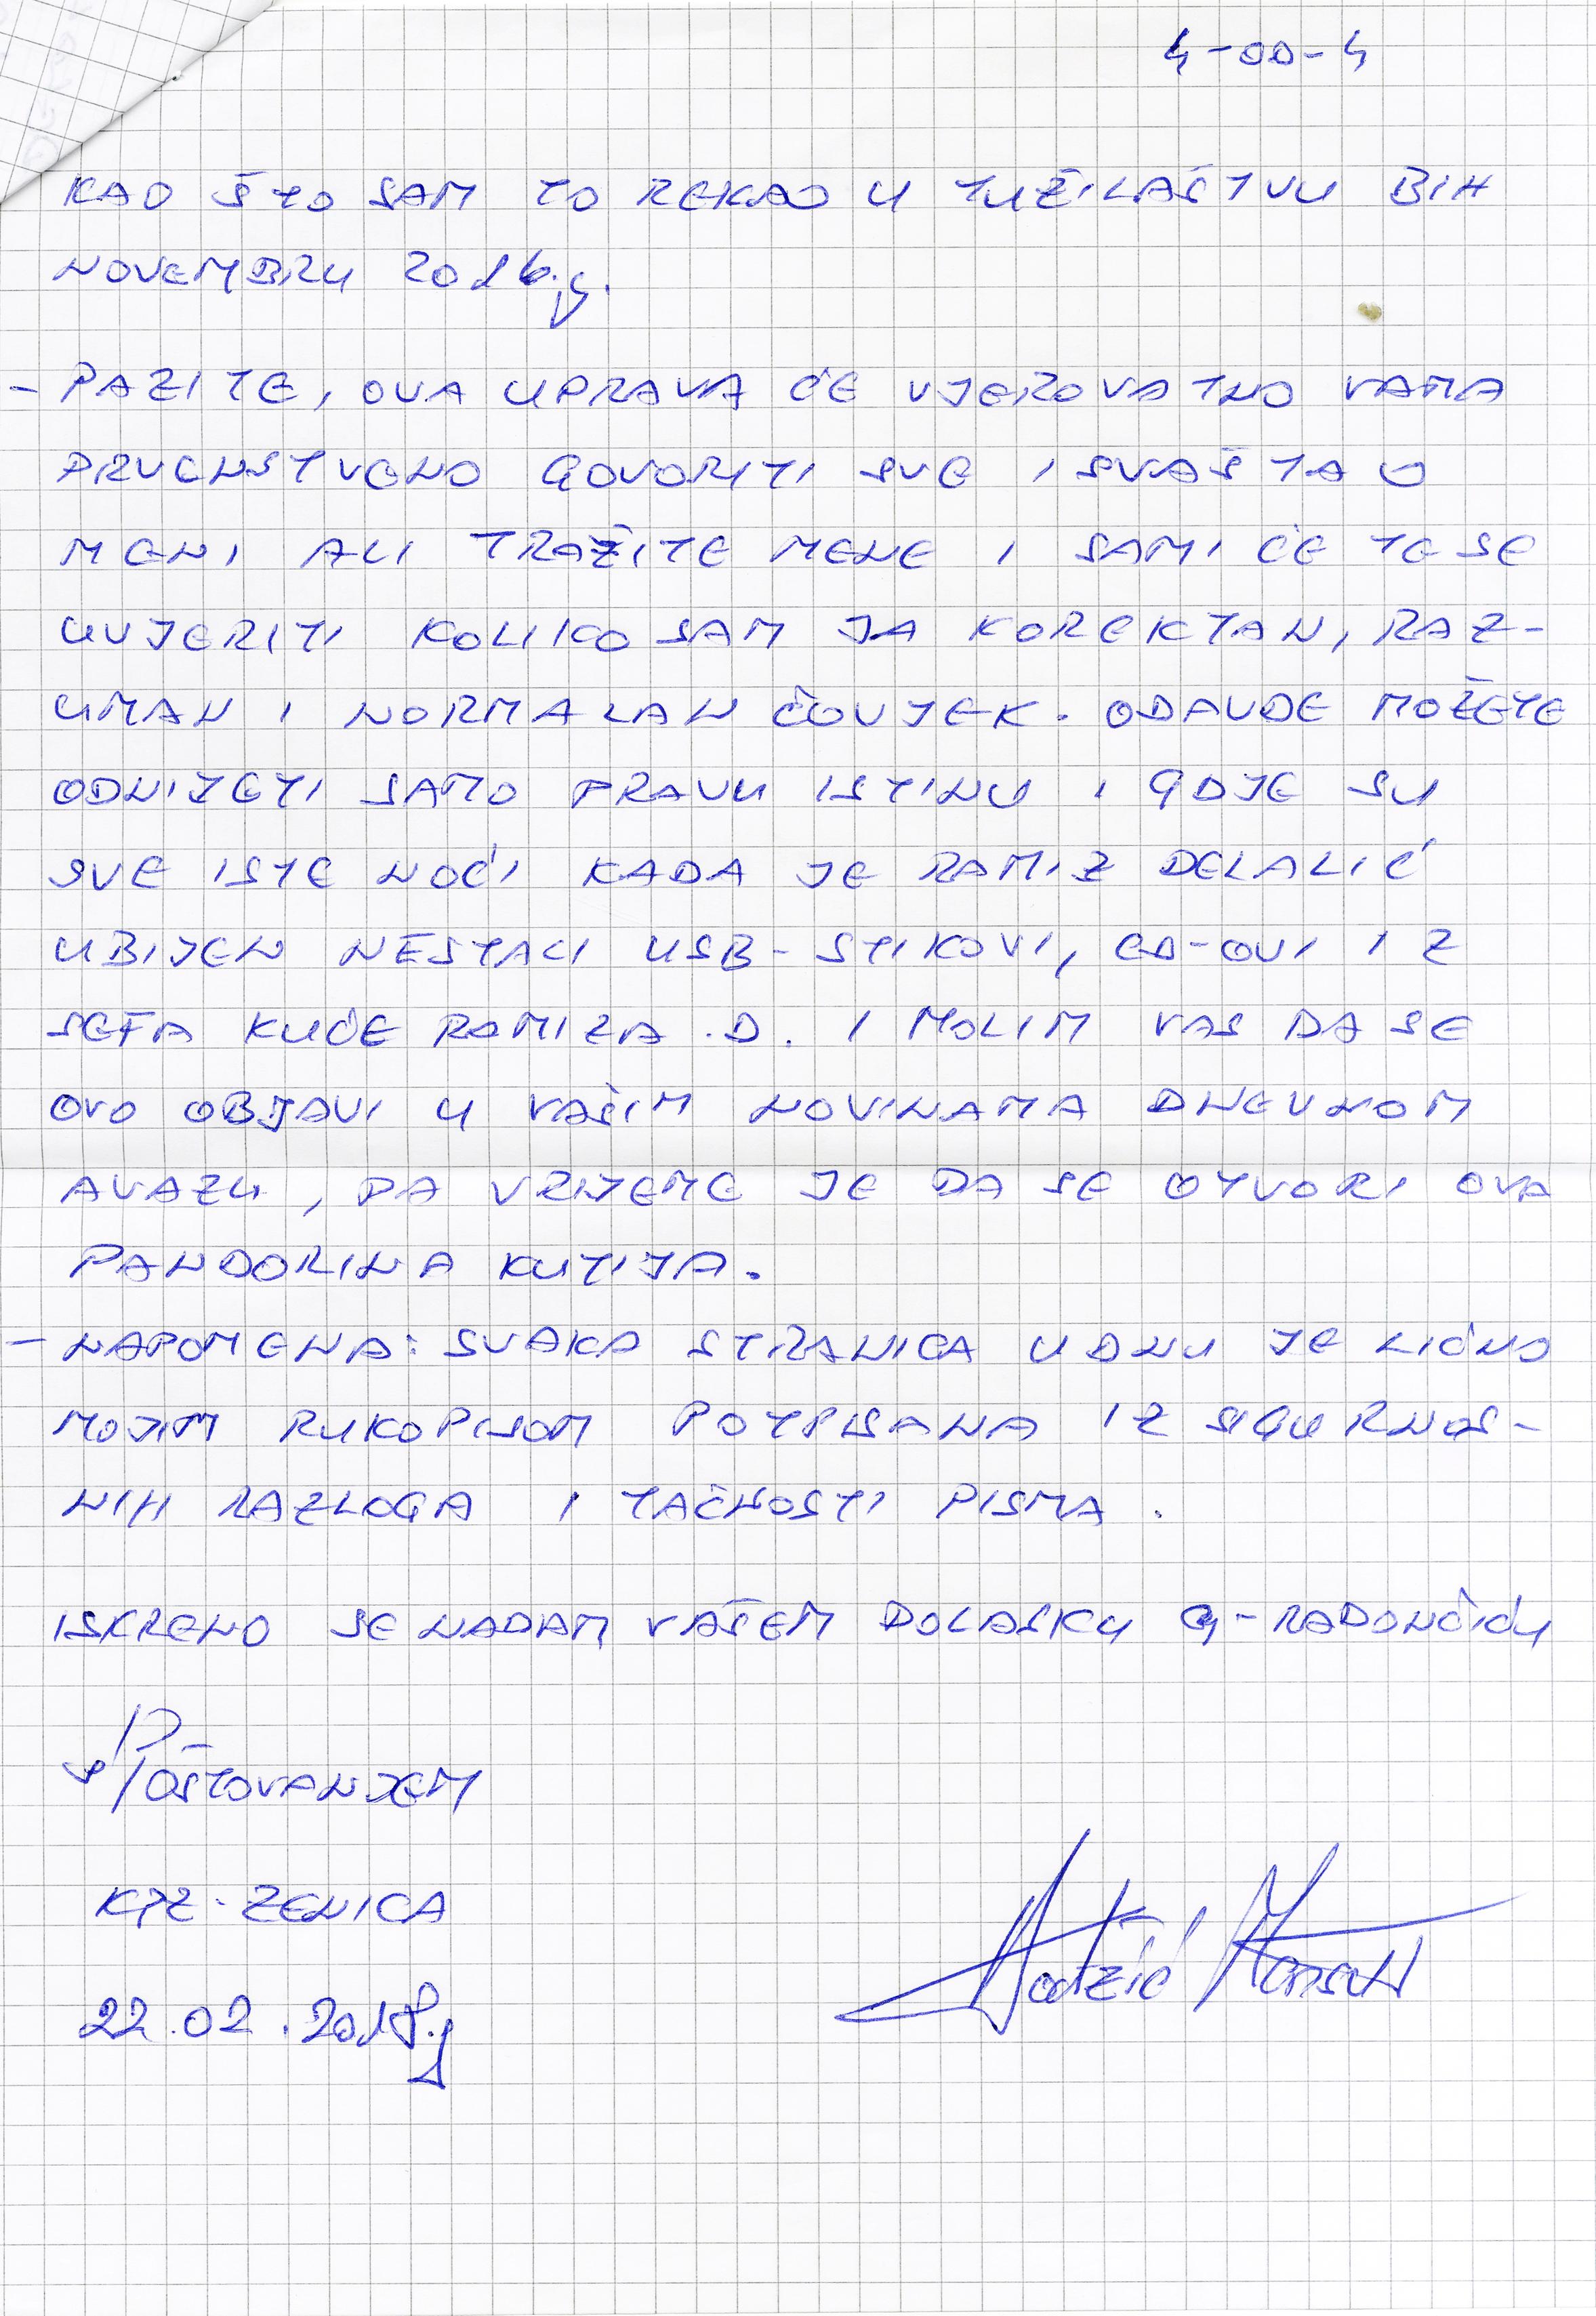 4-OD-4
KAO ŠTO SAM TO REKAO U TUŽILAŠTVU BIH
NOVEMBRU 2016.g.
- PAZITE, OVA UPRAVA ĆE VJEROVATNO VAMA
PRVENSTVENO GOVORITI SVE I SVAŠTA O
MENI ALI TRAŽITE MENE I SAMI ĆE TE SE
UVJERITI KOLIKO SAM JA KOREKTAN, RAZ-
UMAN I NORMALAN ČOVJEK. ODAVDE MOŽETE
ODNIJETI SAMO PRAVU ISTINU I GDJE SU
SVE ISTE NOĆI KADA JE RAMIZ DELALIĆ
UBIJEN NESTALI USB-STIKOVI, CD-OVI IZ
SEFA KUĆE RAMIZA .D. I MOLIM VAS DA SE
OVO OBJAVI U VAŠIM NOVINAMA DNEVNOM
AVAZU, PA VRIJEME JE DA SE OTVORI OVA
PANDORINA KUTIJA.
- NAPOMENA: SVAKA STRANICA U DNU JE LIČNO
MOJIM RUKOPISOM POTPISANA IZ SIGURNOS-
NIH RAZLOGA I TAČNOSTI PISMA.
ISKRENO SE NADAM VAŠEM DOLASKU G-RADONČIĆU
S POŠTOVANJEM
KPZ-ZENICA
22.02.2018.g